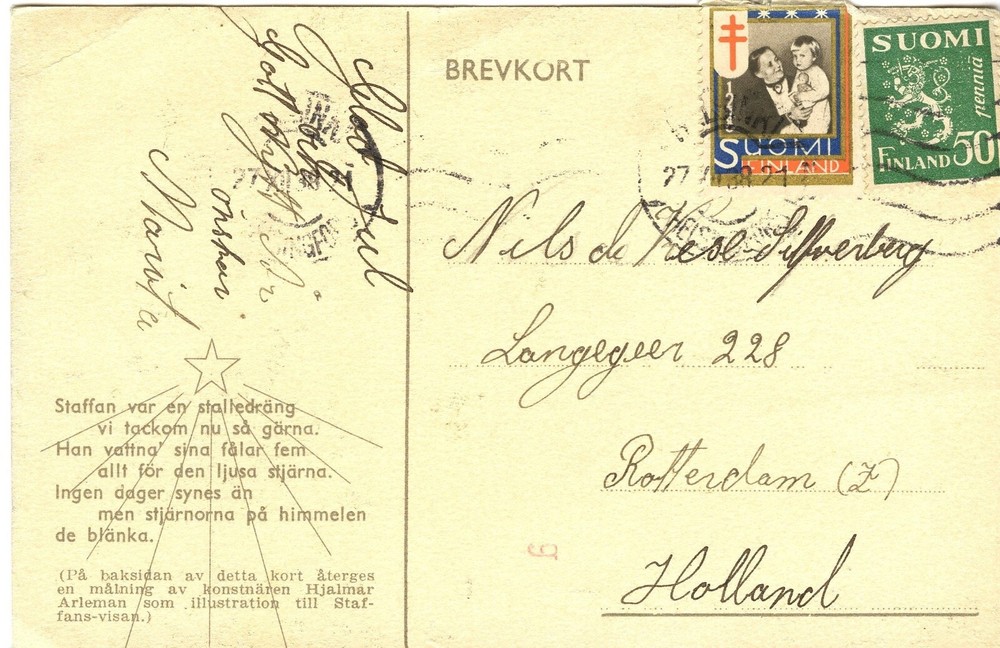 BREVKORT
God Jul
och
Gott Nytt År
önskar
Marita
SUOMI
FINLAND
SUOMI
pennia
FINLAND 50
27
Nils de
Langegeer 228
Rotterdam (Z)
Holland
6
Staffan var en stalledräng
vi tackom nu så gärna.
Han vattna' sina fålar fem
allt för den ljusa stjärna.
Ingen dager synes än
men stjärnorna på himmelen
de blänka.
(På baksidan av detta kort återges
en målning av konstnären Hjalmar
Arleman som illustration till Staf-
fans-visan.)